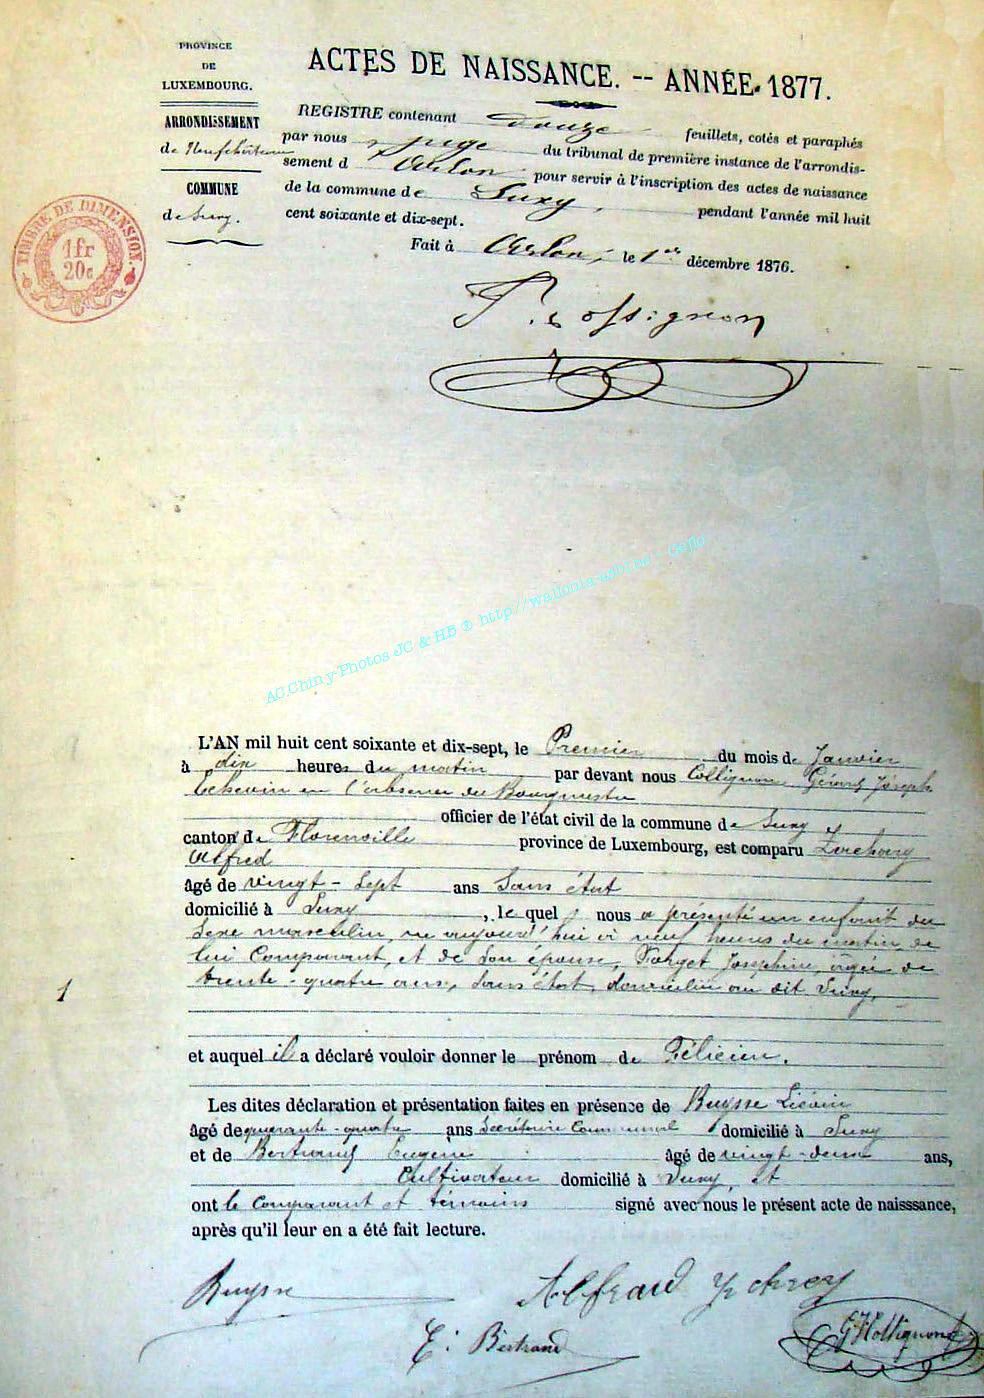 PROVINCE
DE
LUXEMBOURG.
ARRONDISSEMENT
de Neufchâteau
COMMUNE
de Suxy.
TIMBRE DE DIMENSION
1fr
20c
ACTES DE NAISSANCE. -- ANNÉE 1877.
REGISTRE contenant douze feuillets, cotés et paraphés
par nous juge du tribunal de première instance de l'arrondis-
sement d'Arlon pour servir à l'inscription des actes de naissance
de la commune de Suxy, pendant l'année mil huit
cent soixante et dix-sept.
Fait à Arlon, le 1er décembre 1876.
AC.Chiny-Photos JC & HB ® http://wallonia-asbl.be - Geflo
L'AN mil huit cent soixante et dix-sept, le Premier du mois de Janvier
à dix heures du matin par devant nous Collignon Gérard Joseph
Echevin en l'absence du Bourgmestre
officier de l'état civil de la commune de Suxy
canton de Florenville province de Luxembourg, est comparu Zachary
Alfred
âgé de vingt-sept ans Sans état
domicilié à Suxy, lequel nous a présenté un enfant du
sexe masculin, né aujourd'hui à neuf heures du matin de
lui Comparant, et de son épouse, Forget Joséphine, âgée de
trente-quatre ans, sans état, domiciliée au dit Suxy,
1
et auquel il a déclaré vouloir donner le prénom de Félicien.
Les dites déclaration et présentation faites en présence de Buysse Liévin
âgé de quarante-quatre ans Secrétaire Communal domicilié à Suxy
et de Bertrand Eugène âgé de vingt-deux ans,
Cultivateur domicilié à Suxy, et
ont le comparant et témoins signé avec nous le présent acte de naisssance,
après qu'il leur en a été fait lecture.
Buysse
E: Bertrand
GJCollignon